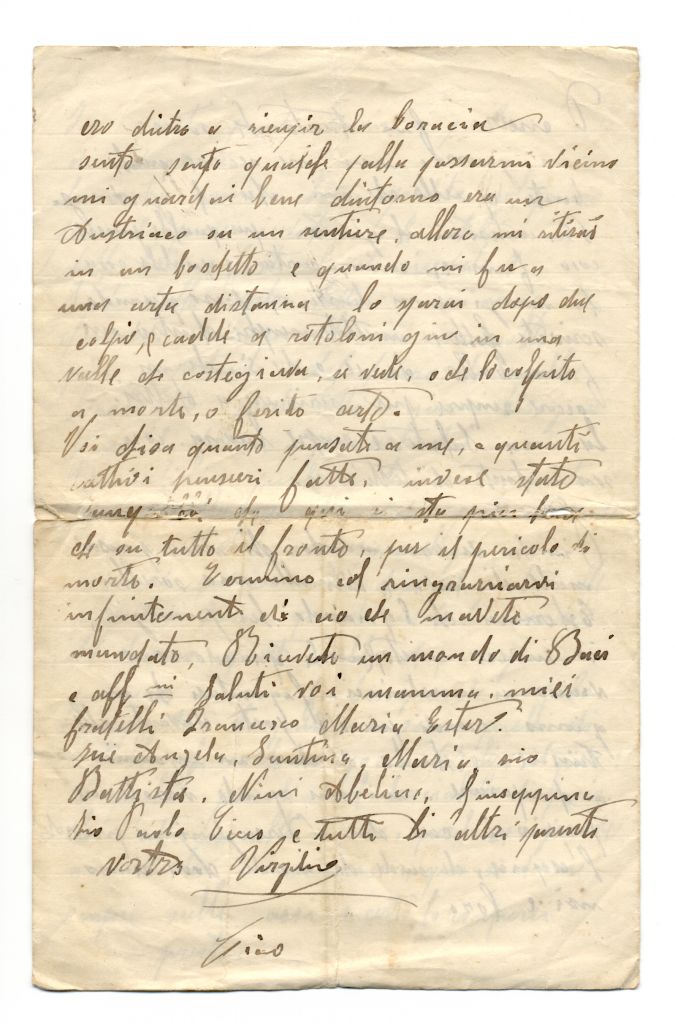 ero dietro a riempir la boracia
sento sento qualche palla passarmi vicino
mi guardai bene dintorno era un
Austriaco su un sentiere, allora mi ritirai
in un boschetto e quando mi fu a
una certa distanza lo sparai dopo due
colpi, e cadde a rotoloni giu in una
valle che costegiava, si vede, o che lo colpito
a, morte, o ferito certo.
Voi disa quanto pensate a me, e quanti
cattivi pensieri fatte, invece state
che qui si sta piu bene
che su tutto il fronto, per il pericolo di
morte. Termino col ringraziarvi
infinitamente di cio che mavete
mandato, Ricevete un mondo di Baci
e aff mi Saluti voi mamma, miei
fratelli Francesco Maria Ester.
zie Angela, Santina, Maria, zio
Battista, Nini Abelino, Giuseppina
zio Paolo Cicco e tutti li altri parenti
vostro Virgilio
Ciao